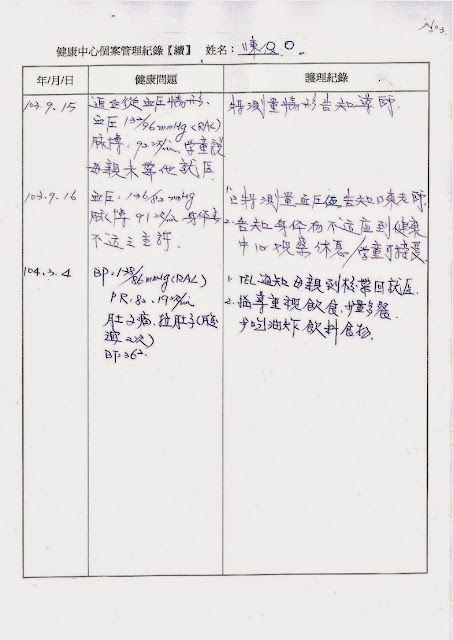 No3.
健康中心個案管理紀錄【續】 姓名：陳○○
年/月/日 健康問題 護理紀錄
103.9.15 追蹤血壓情形. 將測量情形告知導師.
血壓 132/96mmHg(RAL)
脈搏: 92次/min. 学童説
母親未帶他就医
103.9.16 血壓: 136/80 mmHg 1.已將測量血压值告知陳老師.
脈搏 91次/min 身体無 2.告知身体有不适应到健康
不适之主訴. 中心觀察休息/学童可接受
104.3.4 BP: /86mmHg(RAL) 1. TEL通知母親到校帶回就医.
PR: 80. 19次/min 2.指導重視飲食,少量多餐
肚子痛,拉肚子(腹 少吃油炸飲料食物
瀉2次)
BT: 36²